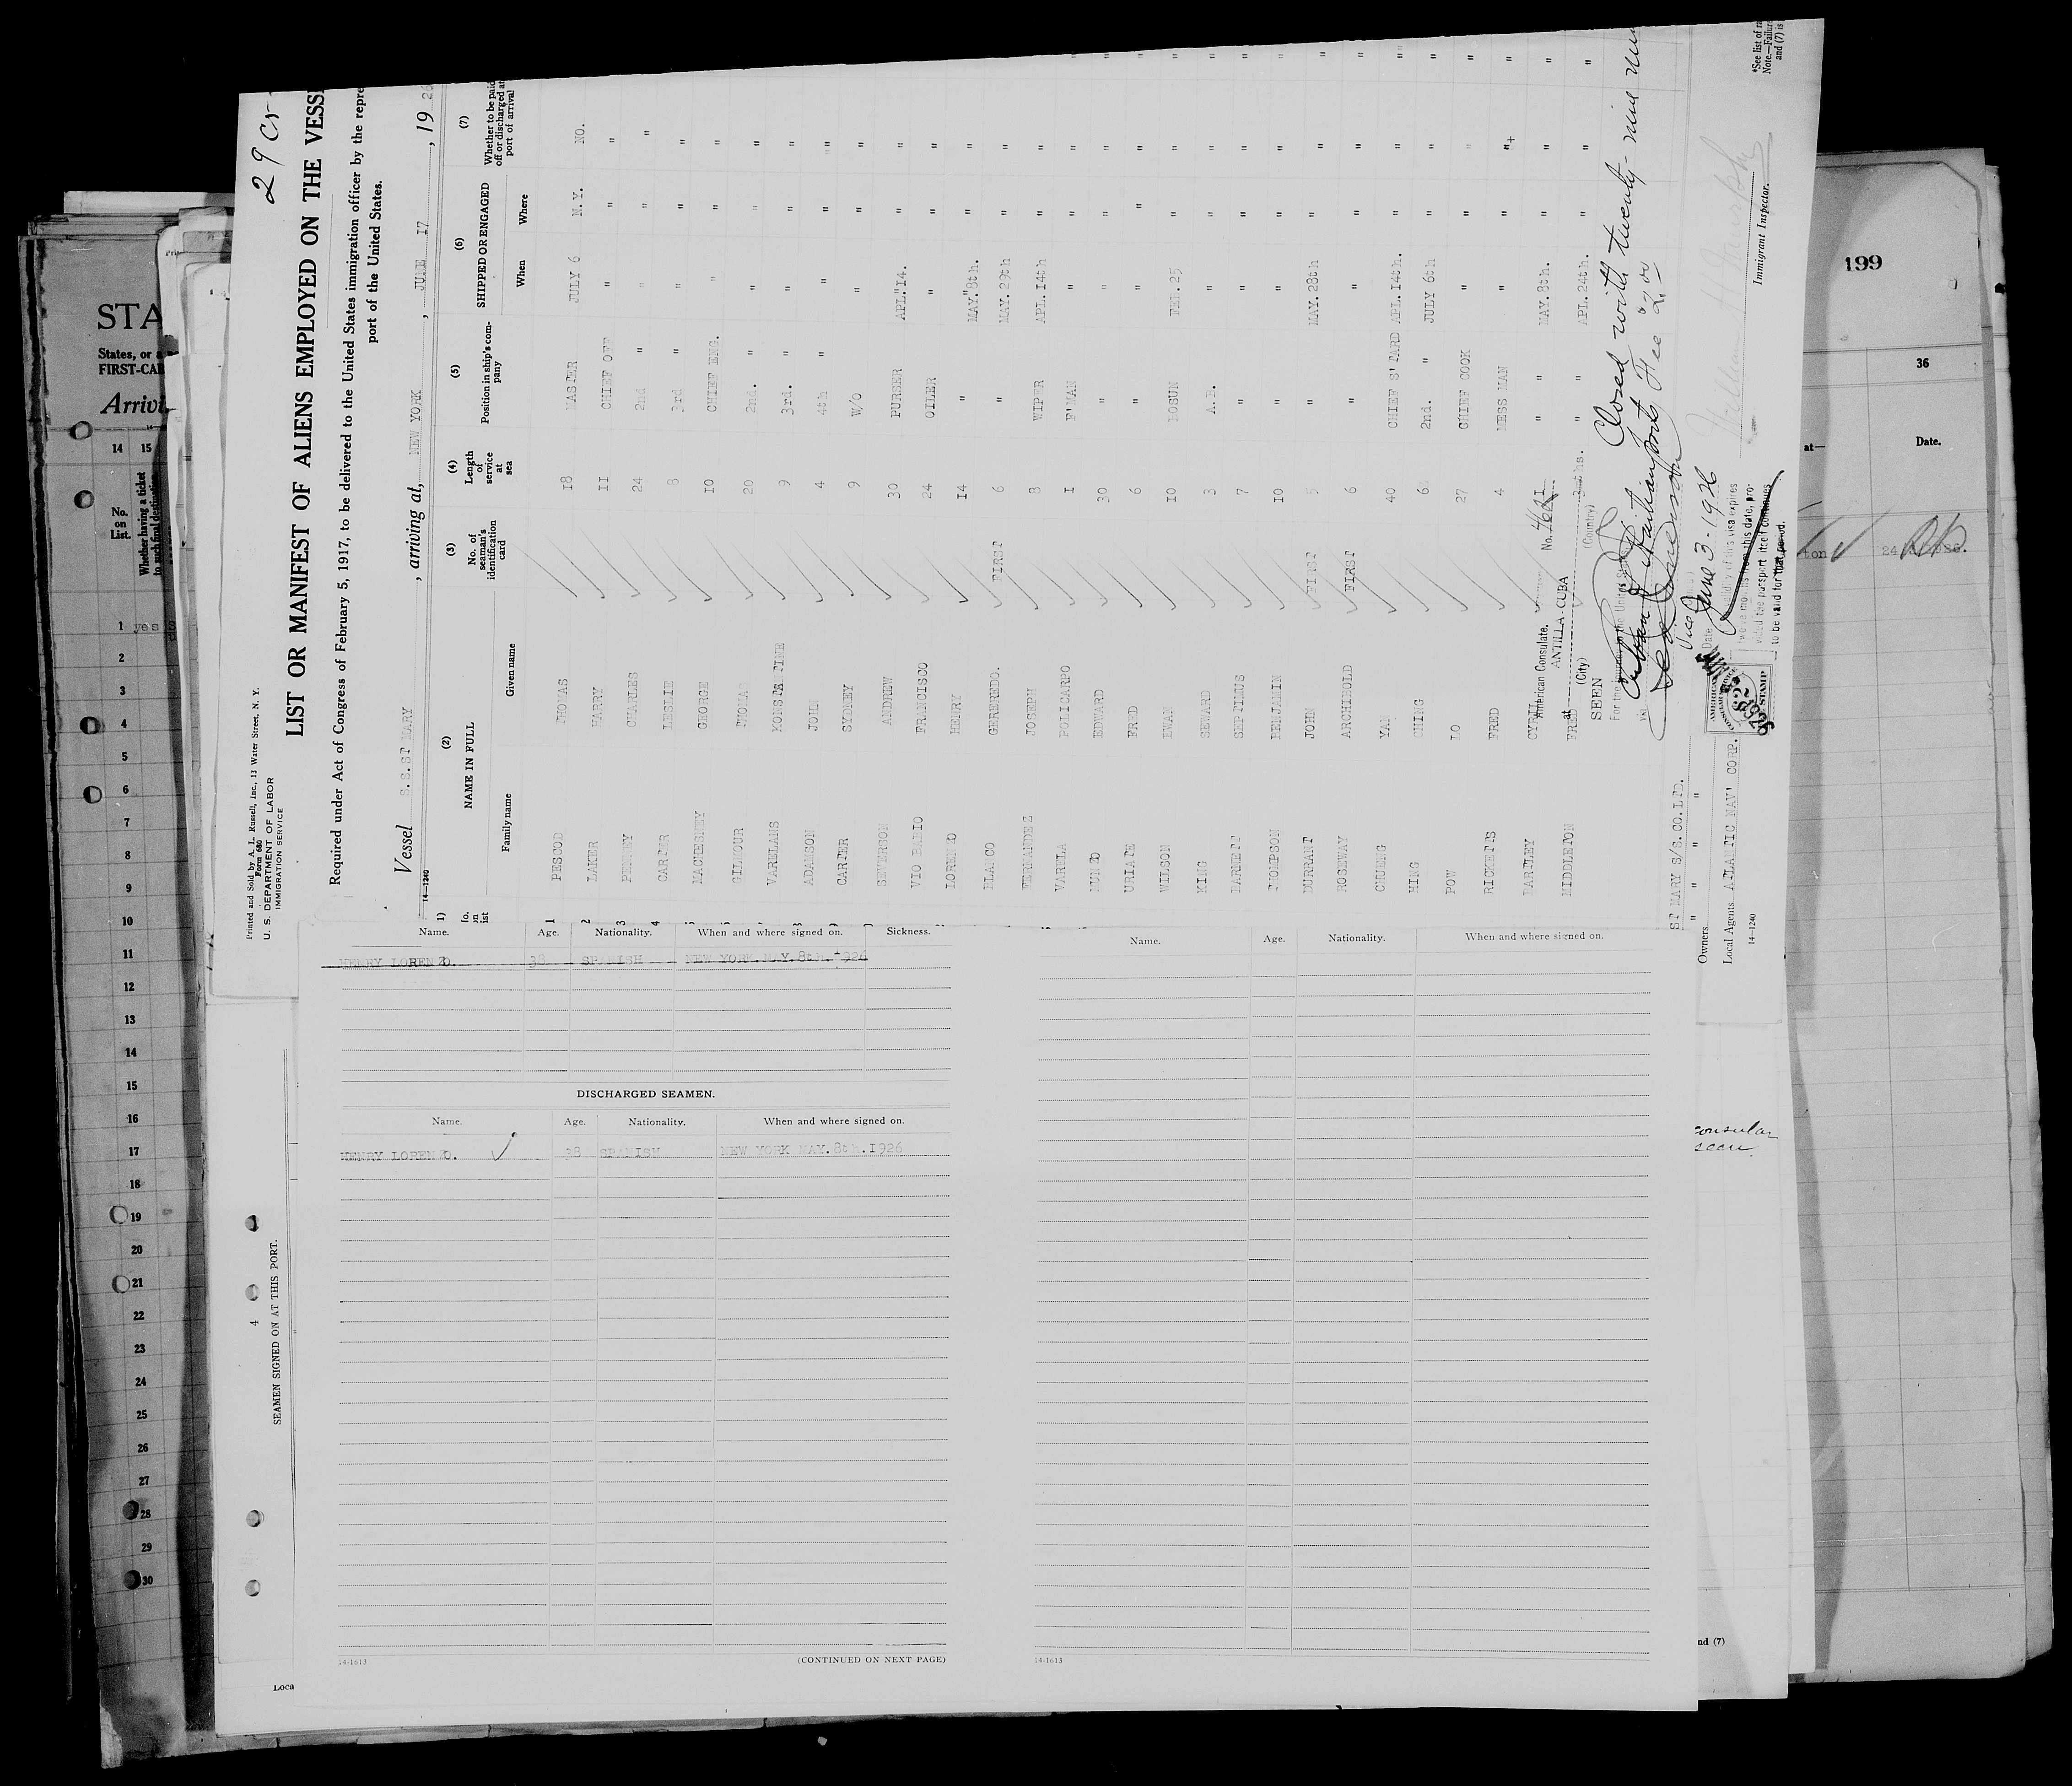 29 Cr
Printed and Sold by A. L. Russell, Inc., 13 Water Street, N. Y.
Form 680
U. S. DEPARTMENT OF LABOR
IMMIGRATION SERVICE
LIST OR MANIFEST OF ALIENS EMPLOYED ON THE VESSE
Required under Act of Congress of February 5, 1917, to be delivered to the United States immigration officer by the repre
port of the United States.
Vessel S.S.ST MARY, arriving at, NEW YORK, JUNE 17, 1926
14-1240
(2) NAME IN FULL
Family name Given name
(3) No. of seaman's identification card
(4) Length of service at sea
(5) Position in ship's company
(6) SHIPPED OR ENGAGED
When Where
(7) Whether to be paid off or discharged at port of arrival
1 PESCOD THOMAS 18 MASTER JULY 6 N.Y. NO.
2 LAKER HARRY 11 CHIEF OFF " " "
3 PENNEY CHARLES 24 2nd " " " "
4 CARTER LESLIE 8 3rd " " " "
MACHESNEY GEORGE 10 CHIEF ENG. " " "
GILMOUR THOMAS 20 2nd. " " " "
VARELANS KONSTANTINE 9 3rd. " " " "
ADAMSON JOHN 4 4th " " " "
CARTER SYDNEY 9 W/O " " "
SEVERSON ANDREW 30 PURSER APL."14. " "
VIO BARIO FRANCISCO 24 OILER " " "
LORENZO HENRY 14 " MAY."8th. " "
BLANCO GEREREDO. FIRST 6 " MAY. 29th " "
FERNANDEZ JOSEPH 8 WIPER APL. 14th " "
VARELA POLICARPO 1 F'MAN " " "
NUNEZ EDWARD 30 " " " "
URIATE FRED 6 " " " "
WILSON EVAN 10 BOSUN FEB. 25 " "
KING SEWARD 3 A.B. " " "
BARNETT SEPTIMUS 7 " " " "
THOMPSON BENJAMIN 10 " " " "
DURRANT JOHN FIRST 5 " MAY. 28th " "
ROSEWAY ARCHIBOLD FIRST 6 " " " "
CHUENG YAN 40 CHIEF S'TARD APL. 14th. " "
HING CHING 6 2nd. " JULY 6th " "
POW LO 27 CHIEF COOK " " "
RICKETTS FRED 4 MESS MAN " " "
BARTLEY CYRIL " " MAY. 8th. " "
MIDDLETON FRED 3mths. " " APL. 24th " "
No. 4621
American Consulate,
at ANTILLA - CUBA
(City) (Country)
SEEN
Closed with twenty-nine
Fee $2.00
Vice
Date June 3-1926
twelve months from this date, pro-
vided the passport itself continues
to be valid for that period.
Immigrant Inspector.
ST MARY S/S.CO.LTD.
Owners " " " "
Local Agents ATLANTIC NAV' CORP.
14-1240
*See list of ra
Note.—Failure
and (7) is
Name. Age. Nationality. When and where signed on. Sickness.
HENRY LORENZO. 38 SPANISH NEW YORK. MAY. 8th. 1926
DISCHARGED SEAMEN.
Name. Age. Nationality. When and where signed on.
HENRY LORENZO. 38 SPANISH NEW YORK MAY.8th.1926
14-1613
(CONTINUED ON NEXT PAGE)
Name. Age. Nationality. When and where signed on.
14-1613
4
SEAMEN SIGNED ON AT THIS PORT.
Loca
STA
States, or a
FIRST-CAB
Arrivi
14 15
No. on List.
Whether having a ticket to such final destination
1 yes
2
3
4
5
6
7
8
9
10
11
12
13
14
15
16
17
18
19
20
21
22
23
24
25
26
27
28
29
30
199
36
at—
Date.
ton
24
consular
seen
nd (7)